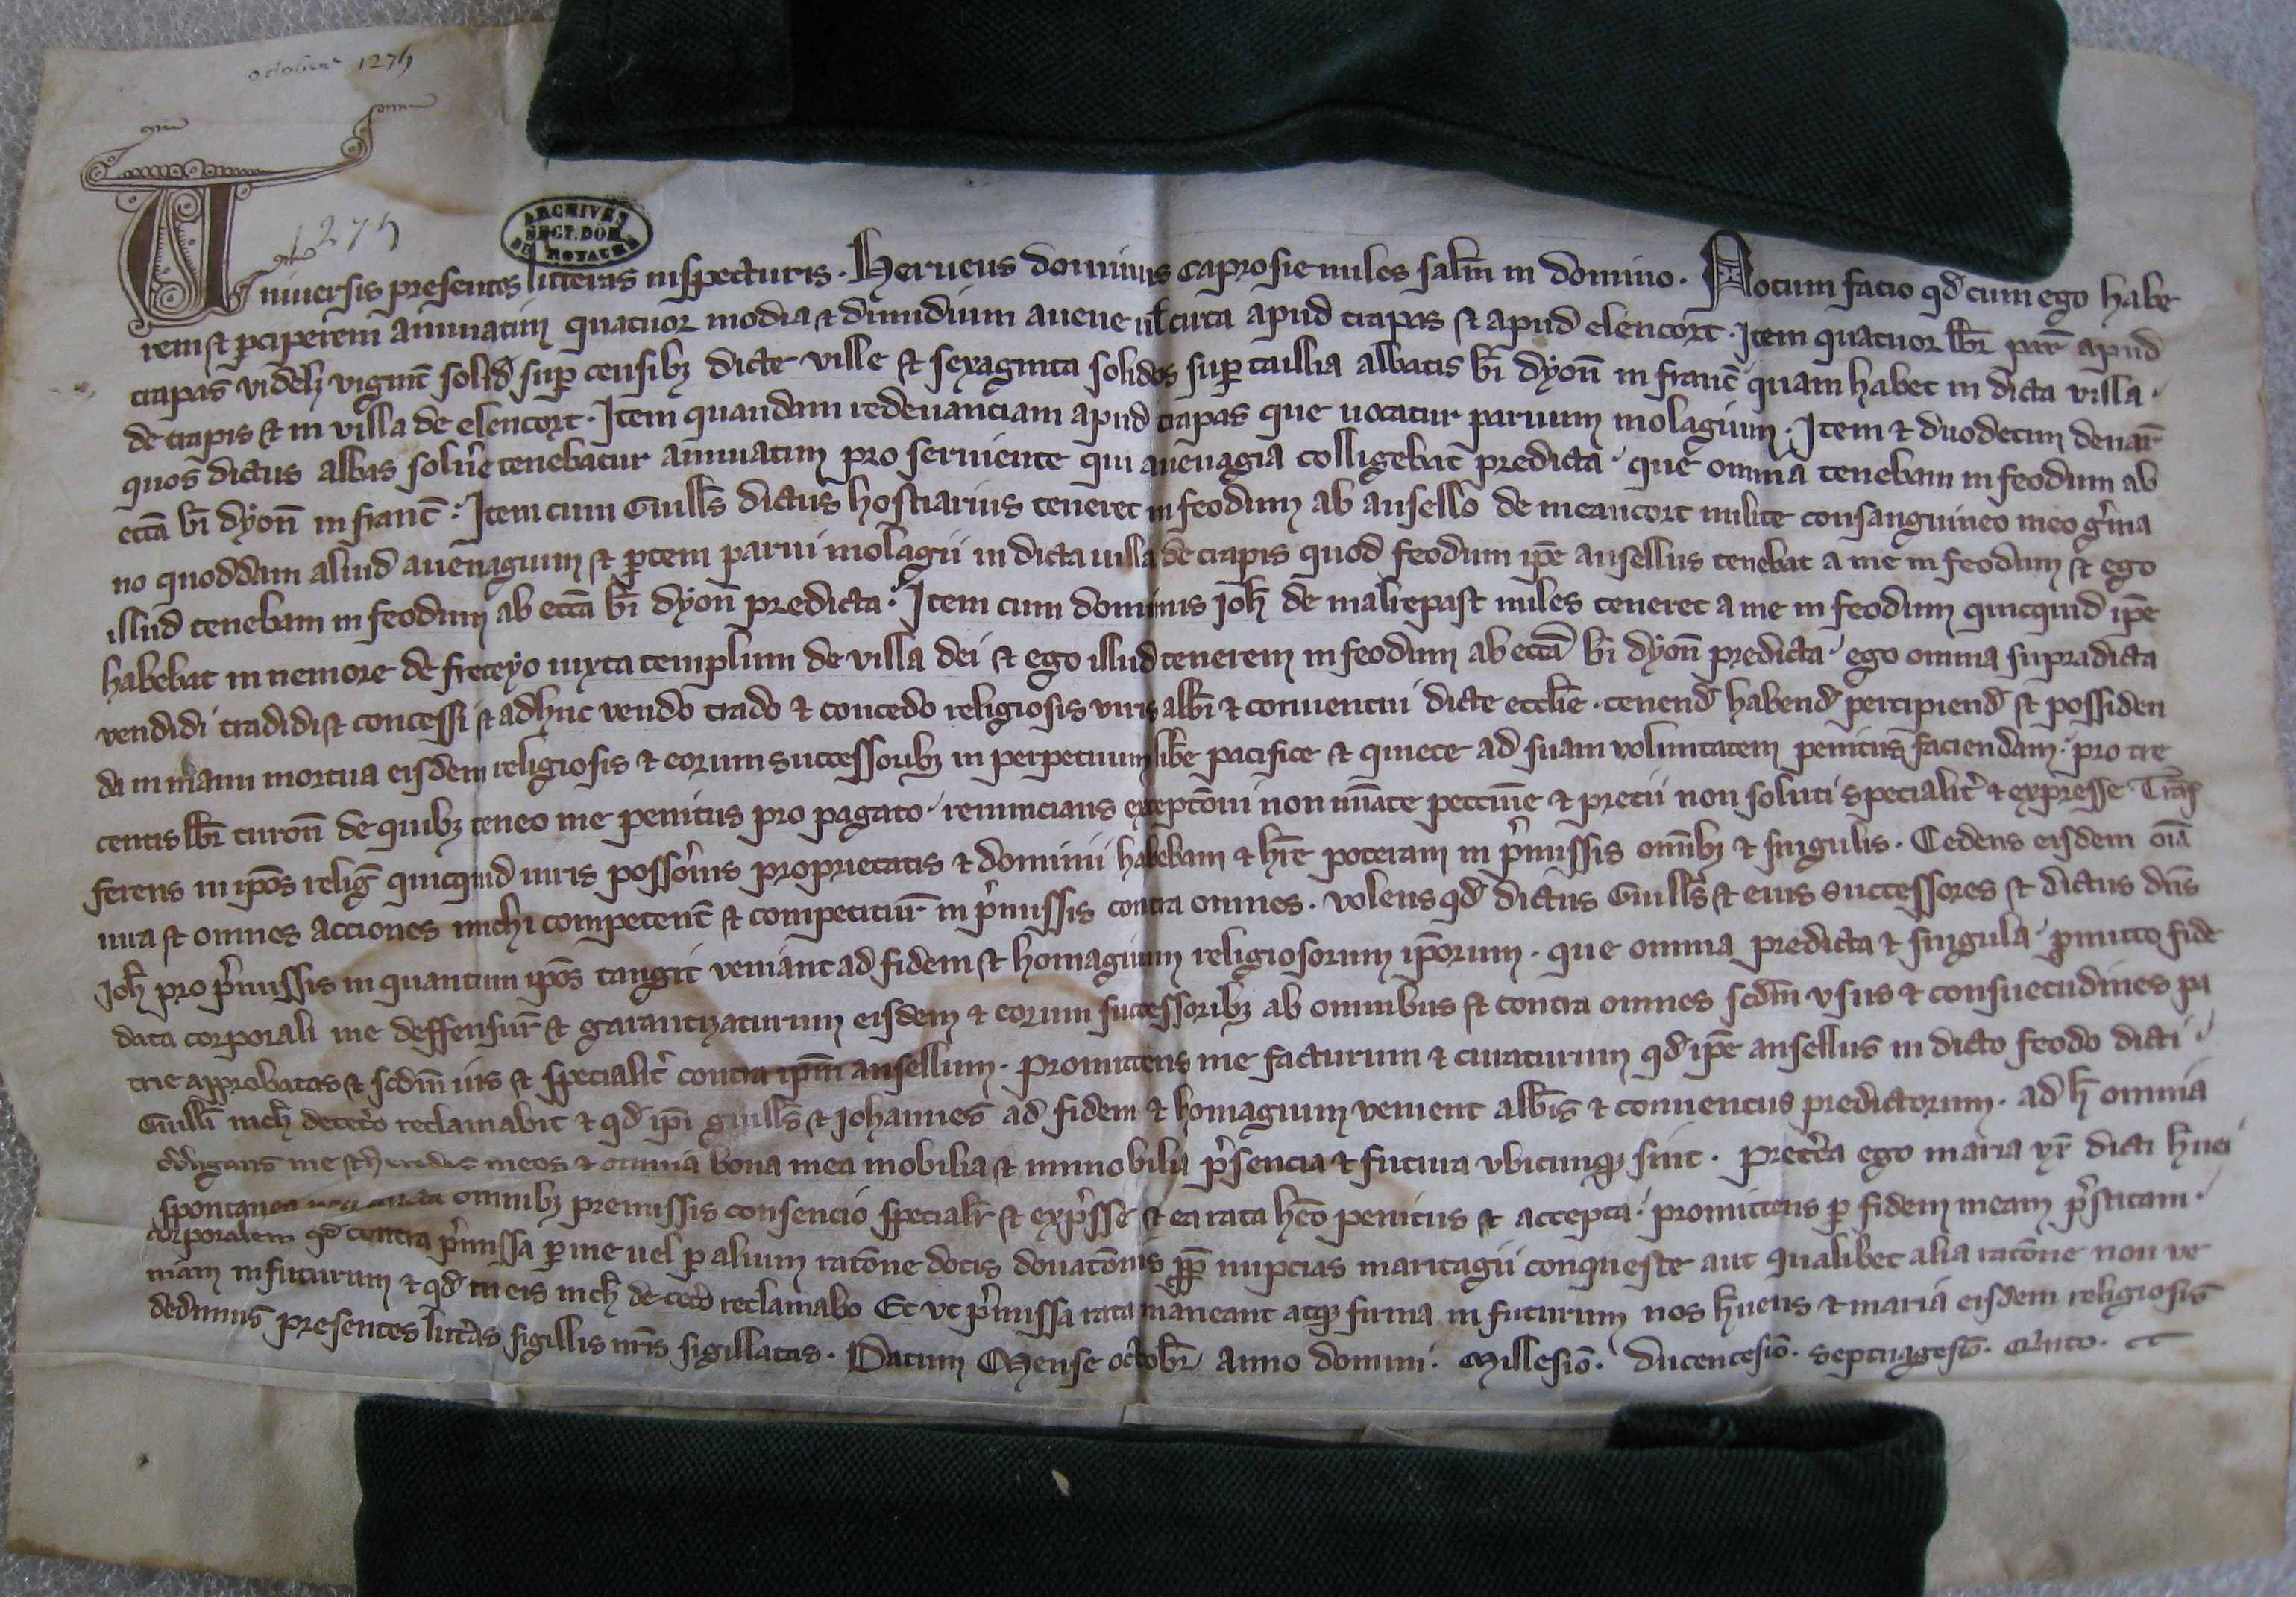 octobre 1275
1275
ARCHIVES
SECT. DOM.
DU ROYAUME
Universis presentes litteras inspecturis. Herveus dominus caprosie miles salm in domino. Notum facio qd cum ego habe
rem et pciperem annuatim quatuor modia et dimidium avene vl circa apud trapas et apud elencort. Item quatuor libr par apud
trapas videlz vigint solid sup censibz dicte ville et sexaginta solidos sup taillia abbatis bi dyon in franc quam habet in dicta villa
de trapis et in villa de elencort. Item quandam redevanciam apud trapas que vocatur parvum molagium. Item et duodecim denar
quos dictus abbas solvere tenebatur annuatim pro serviente qui avenagia colligebat predicta que omnia tenebam in feodum ab
eccia bi dyon in franc. Item cum Guills dictus hostiarius teneret in feodum ab ansello de meancort milite consanguineo meo gma
no quoddam aliud avenagium et ptem parvi molagii in dicta villa de trapis quod feodum ipe ansellus tenebat a me in feodum et ego
illud tenebam in feodum ab eccia bi dyon predicta. Item cum dominus Joh de malrepast miles teneret a me in feodum quicquid ipe
habebat in nemore de freteyo iuxta templum de villa dei et ego illud tenerem in feodum ab eccia bi dyon predicta ego omnia supradicta
vendidi tradidi et concessi et adhuc vendo trado et concedo religiosis viris abbi et conventui dicte ecclie. tenend habend percipiend et possiden
da in manu mortua eisdem religiosis et eorum successoribz in perpetuum libe pacifice et quiete ad suam voluntatem penitus faciendam. pro tre
centis libr turon de quibz teneo me penitus pro pagato renuncians exceptoni non nuate peccunie et precii non soluti specialit et expresse Trans
ferens in ipos relig quicquid iuris possonis proprietatis et dominii habebam et hre poteram in pmissis omibz et singulis. Cedens eisdem oia
iura et omnes acciones michi competent et competitur in pmissis contra omnes. volens qd dictus Guills et eius successores et dictus dns
Joh pro pmissis in quantum ipos tangit veniant ad fidem et homagium religiosorum iporum. que omnia predicta et singula pmitto fide
data corporali me deffensur et garantizaturum eisdem et eorum successoribz ab omnibus et contra omnes scdm usus et consuetudines pa
trie approbatas et scdm ius et specialit contra ipm ansellum. promittens me facturum et curaturum qd ipe ansellus in dicto feodo dicti
Guilli nich decetero reclamabit et qd ipi guills et Johannes ad fidem et homagium venient abbis et conventus predictorum. ad h omnia
obligans me et heredes meos et omnia bona mea mobilia et immobilia psencia et futura ubicunqz sint. Pretea ego maria ux dicti hvei
spontanea non coacta omnibz premissis consencio specialr et expsse et ea rata heo penitus et accepta promittens p fidem meam pstitam
corporalem qd contra pmissa p me vel p alium ratone dotis donatonis ppp nupcias maritagii conqueste aut qualibet alia ratone non ve
niam in futurum et qd in eis nich de cetero reclamabo Et ut pmissa rata maneant atqz firma in futurum nos hveus et maria eisdem religiosis
dedimus presentes litteras sigillis nris sigillatas. Datum Mense octobr anno domini. Millesio. ducentesio. septuagesio. Quinto.